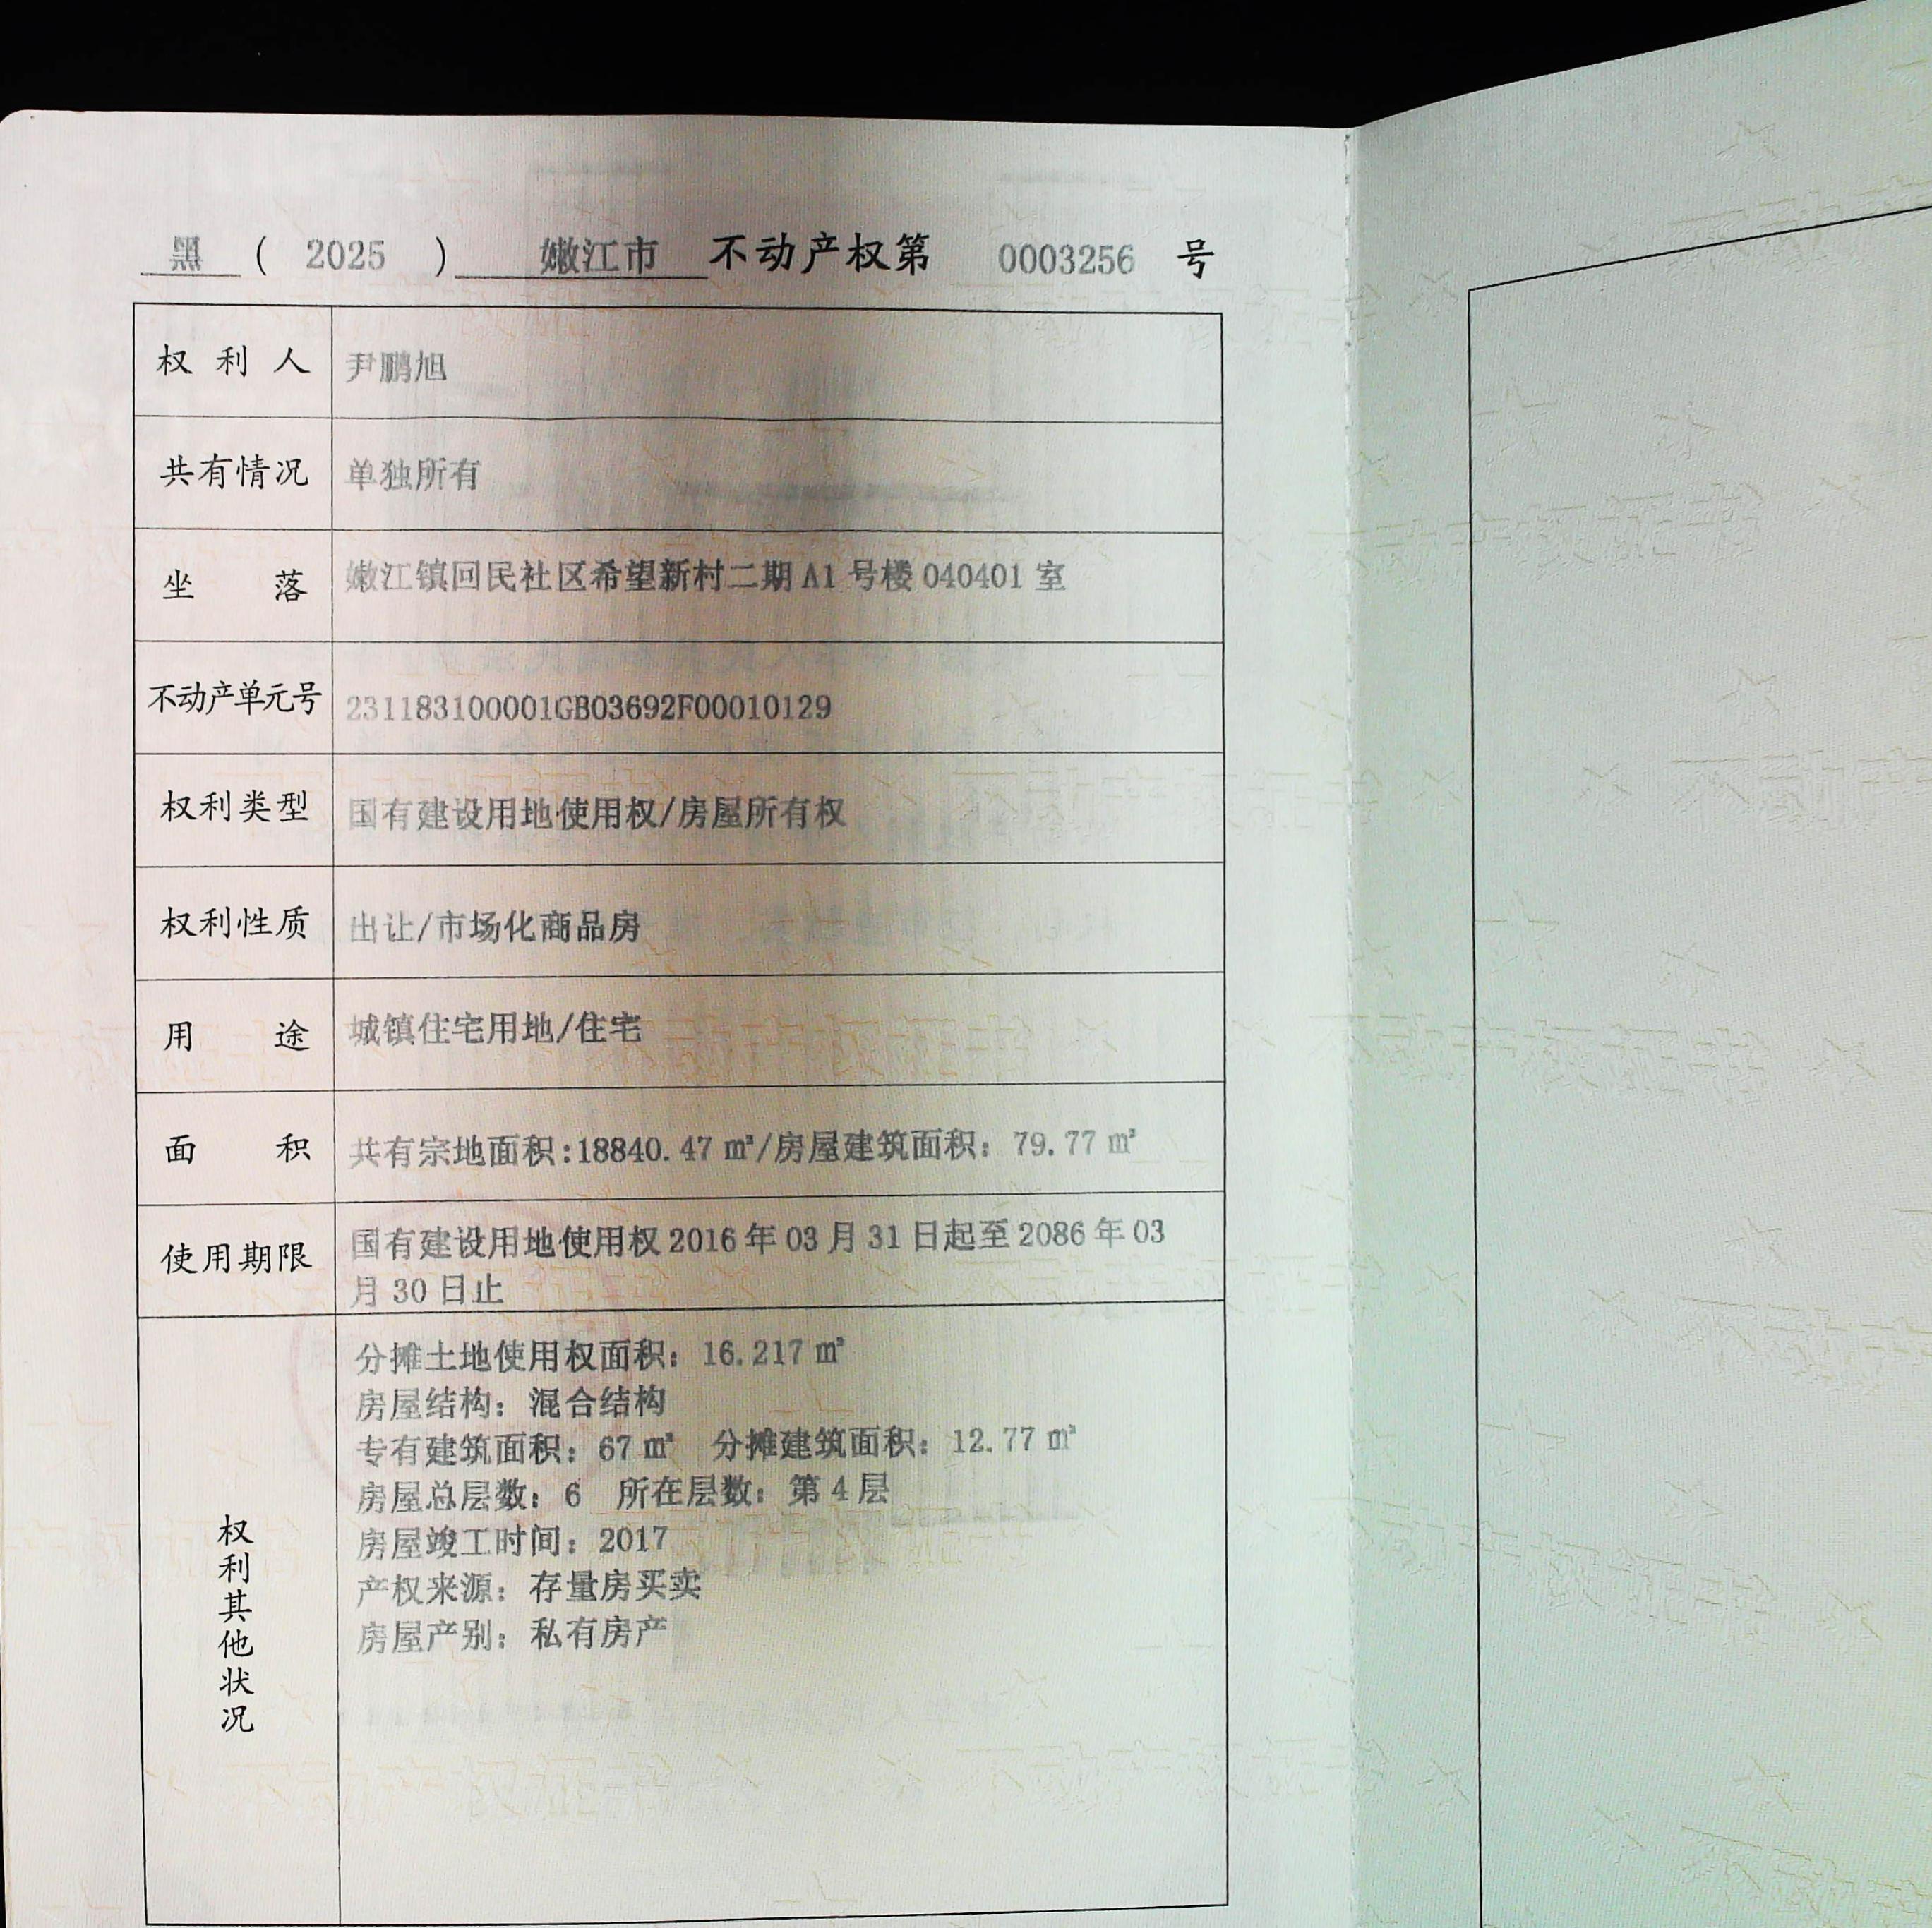 黑 ( 2025 ) 嫩江市 不动产权第 0003256 号
权利人 尹鹏旭
共有情况 单独所有
坐落 嫩江镇回民社区希望新村二期A1号楼040401室
不动产单元号 231183100001GB03692F00010129
权利类型 国有建设用地使用权/房屋所有权
权利性质 出让/市场化商品房
用途 城镇住宅用地/住宅
面积 共有宗地面积:18840.47㎡/房屋建筑面积：79.77㎡
使用期限 国有建设用地使用权2016年03月31日起至2086年03
月30日止
权利其他状况
分摊土地使用权面积：16.217㎡
房屋结构：混合结构
专有建筑面积：67㎡ 分摊建筑面积：12.77㎡
房屋总层数：6 所在层数：第4层
房屋竣工时间：2017
产权来源：存量房买卖
房屋产别：私有房产